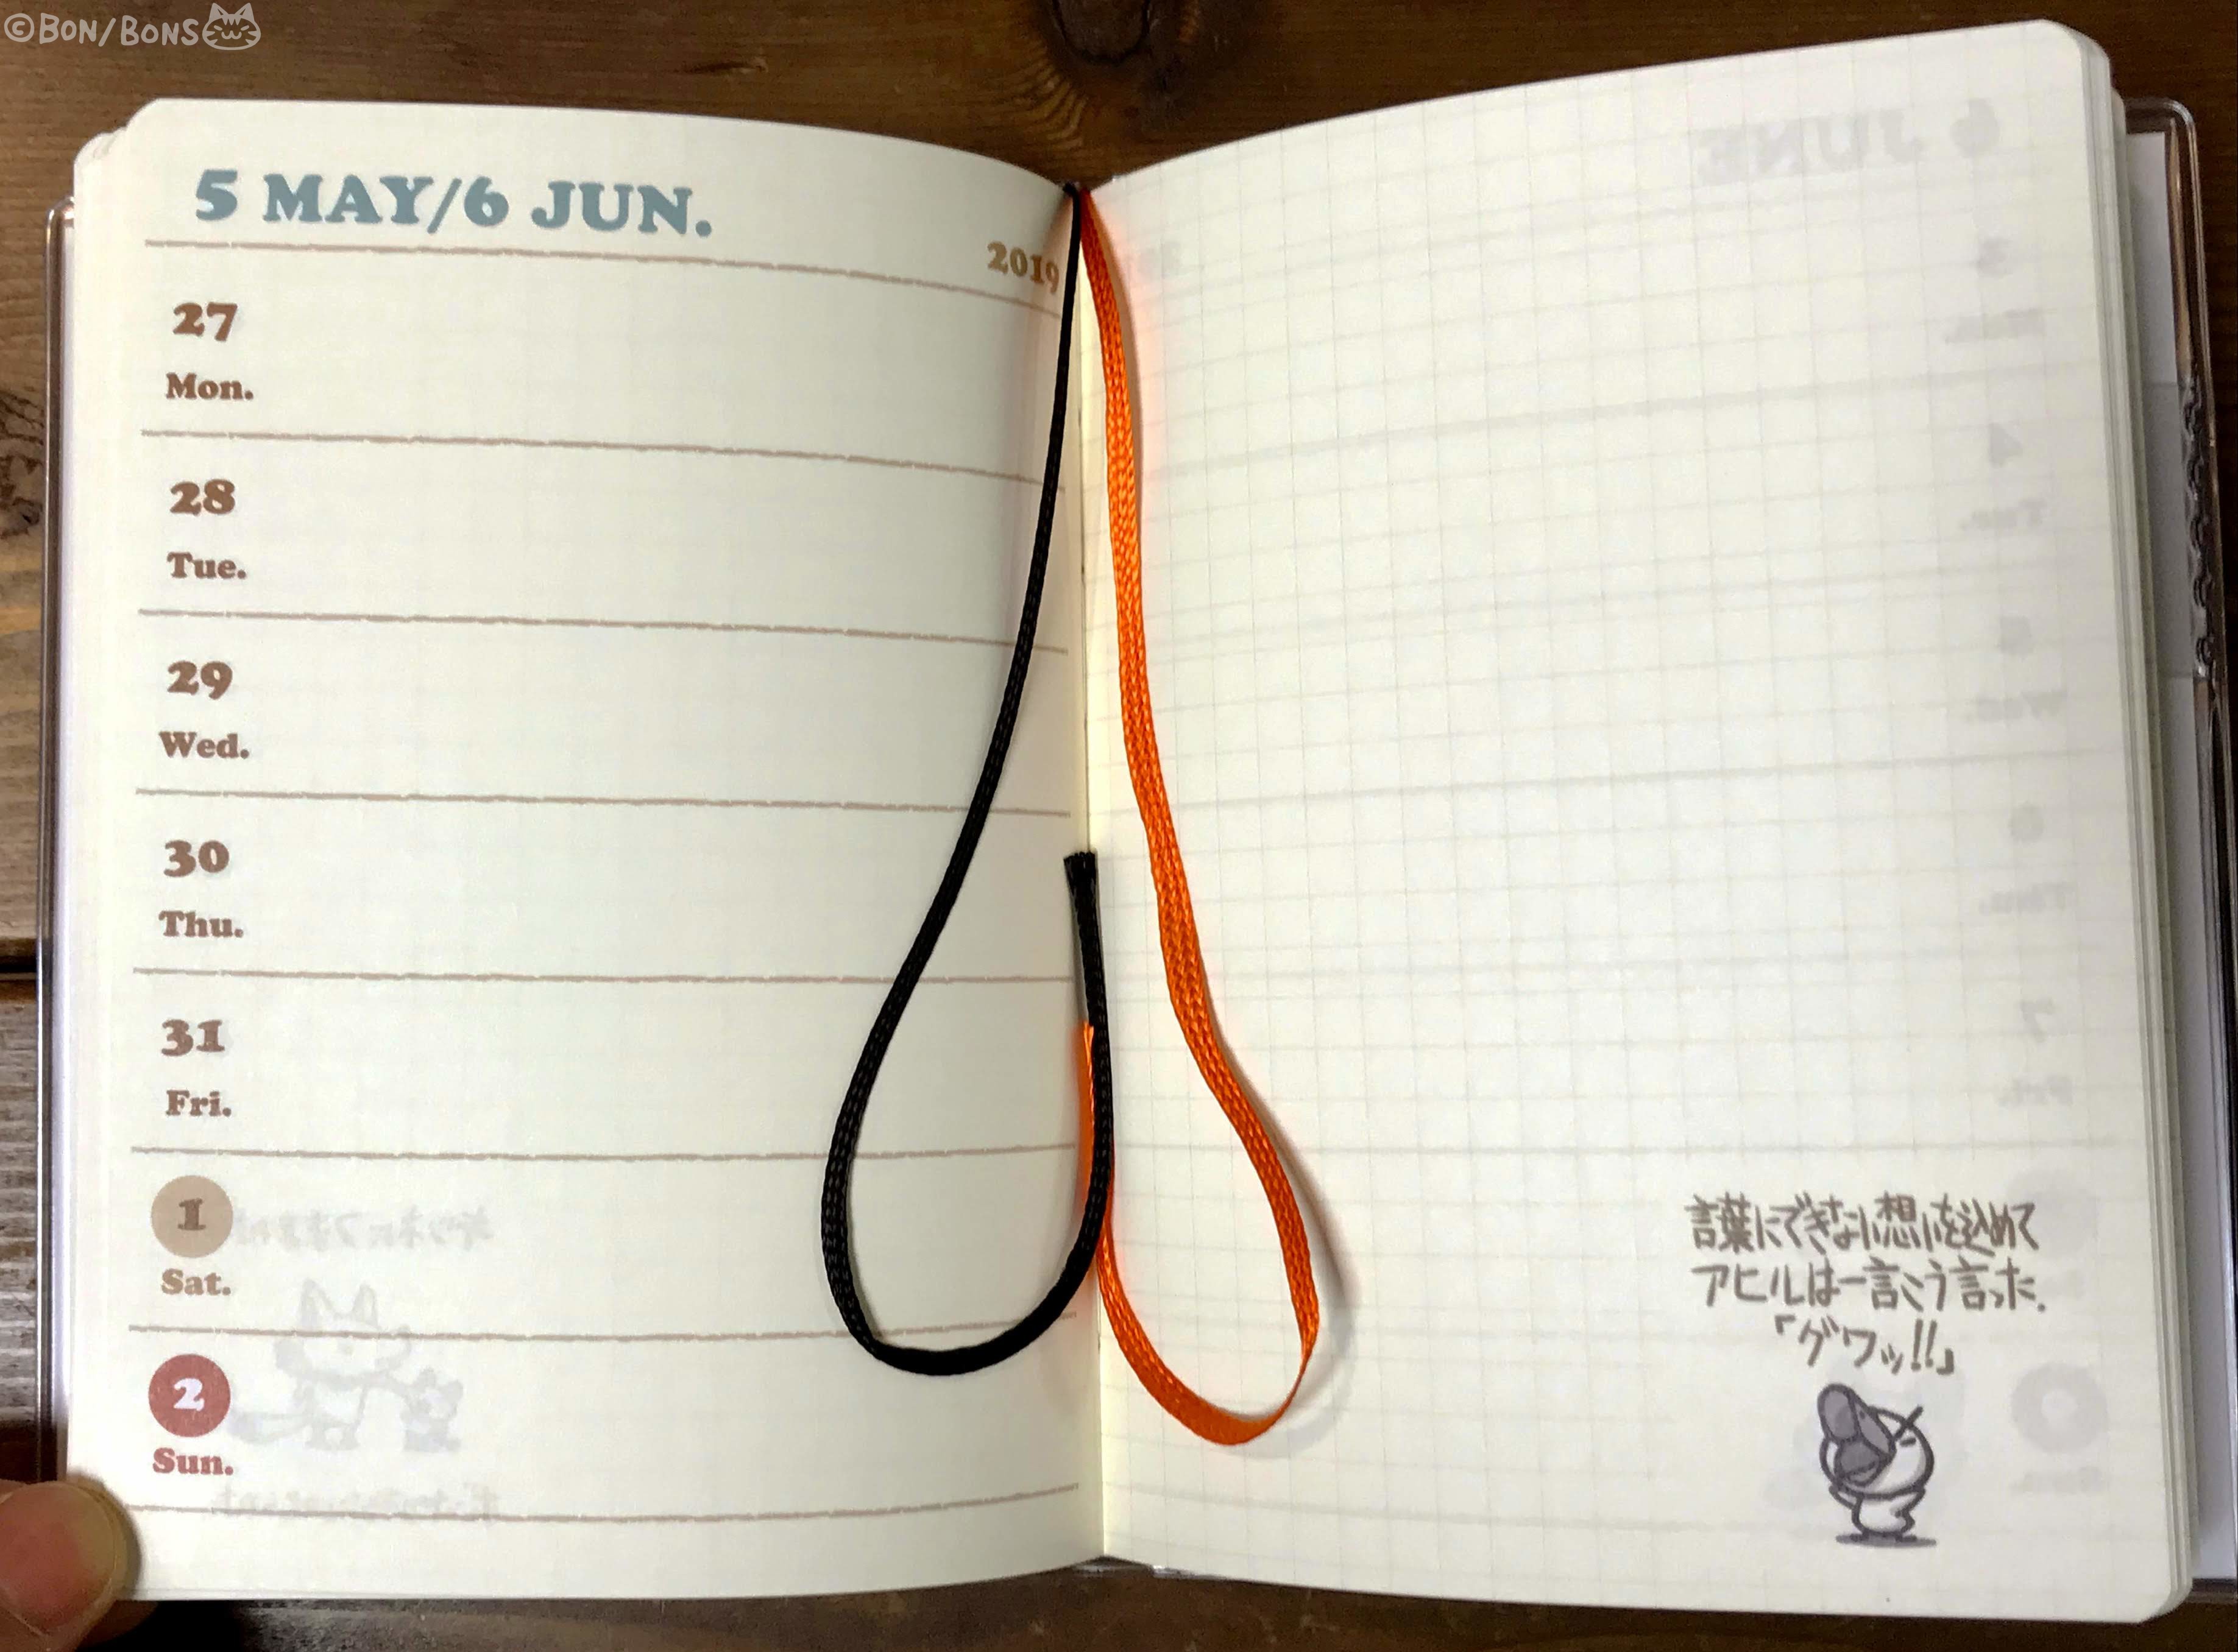 ©BON/BONS
5 MAY/6 JUN.
2019
27
Mon.
28
Tue.
29
Wed.
30
Thu.
31
Fri.
1
Sat.
2
Sun.
6 JUNE
3
Mon.
4
Tue.
5
Wed.
6
Thu.
7
Fri.
言葉にできない想いを込めて
アヒルは一言こう言った.
「グワッ!!」